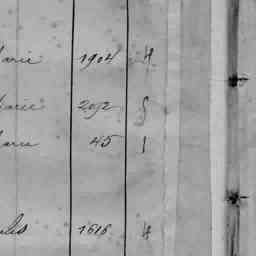 arie 1904 H
Marie 2092 S
arie 45 1
ules 1616 H